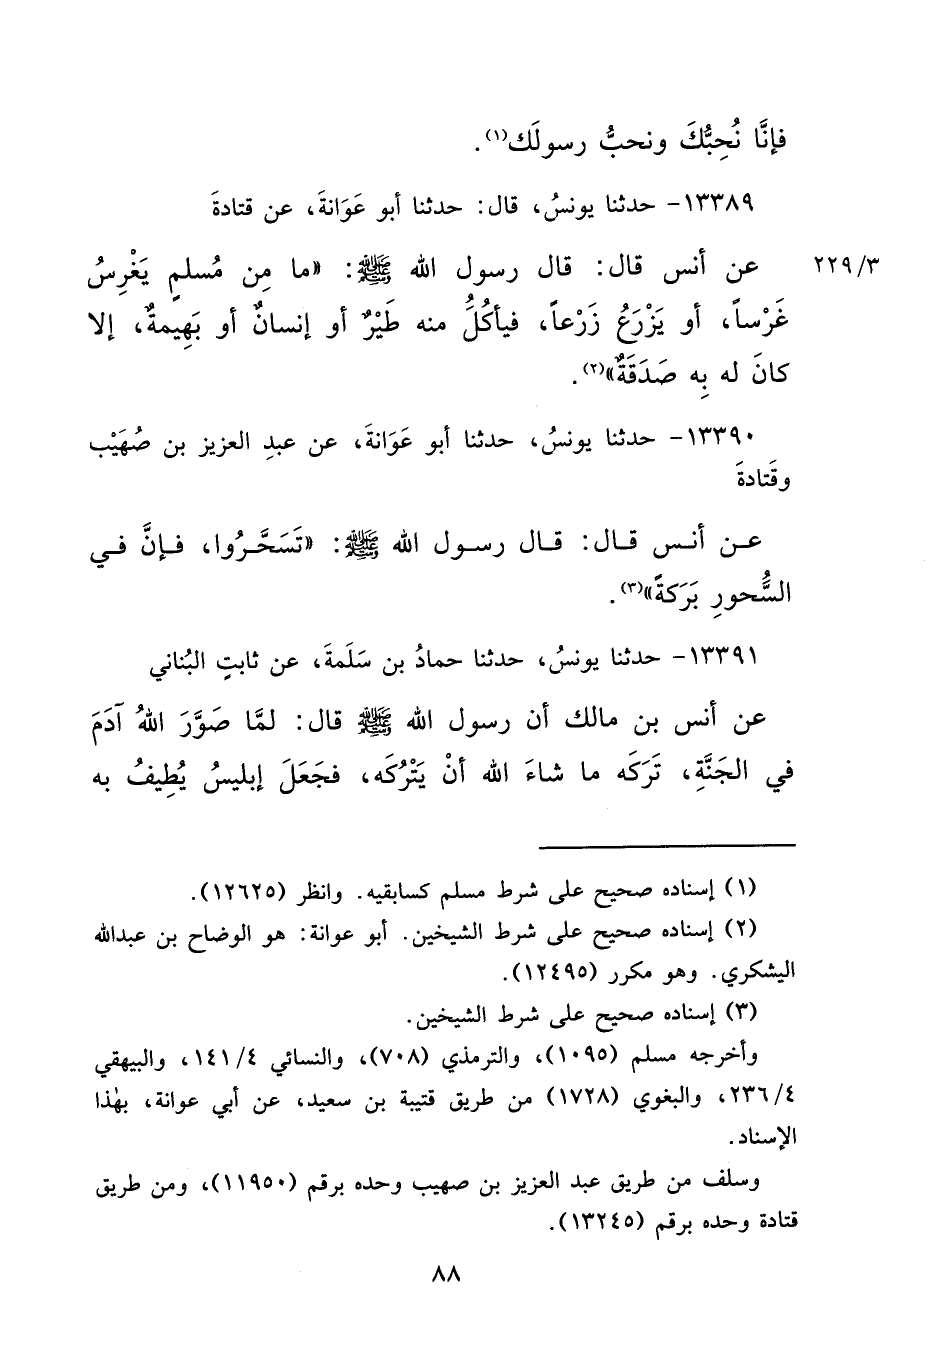 فإنَّا نُحِبُّكَ ونحبُّ رسولَك(١).
١٣٣٨٩- حدثنا يونسُ، قال: حدثنا أبو عَوَانةَ، عن قتادةَ
٢٢٩/٣
عن أنس قال: قال رسول الله ﷺ: «ما مِن مُسلمٍ يَغْرِسُ
غَرْساً، أو يَزْرَعُ زَرْعاً، فيأكُلُ منه طَيْرٌ أو إنسانٌ أو بَهِيمةٌ، إلا
كانَ له بِه صَدَقَةٌ»(٢).
١٣٣٩٠- حدثنا يونسُ، حدثنا أبو عَوَانةَ، عن عبدِ العزيز بن صُهَيْب
وقَتادةَ
عـن أنـس قـال: قـال رسـول الله ﷺ: «تَسَحَّـرُوا، فـإنَّ فـي
السُّحورِ بَرَكةً»(٣).
١٣٣٩١- حدثنا يونسُ، حدثنا حمادُ بن سَلَمةَ، عن ثابتٍ البُناني
عن أنس بن مالك أن رسول الله ﷺ قال: لمَّا صَوَّرَ اللهُ آدَمَ
في الجَنَّةِ، تَرَكَه ما شاءَ الله أنْ يَتْرُكَه، فجَعَلَ إبليسُ يُطِيفُ به
(١) إسناده صحيح على شرط مسلم كسابقيه. وانظر (١٢٦٢٥).
(٢) إسناده صحيح على شرط الشيخين. أبو عوانة: هو الوضاح بن عبدالله
اليشكري. وهو مكرر (١٢٤٩٥).
(٣) إسناده صحيح على شرط الشيخين.
وأخرجه مسلم (١٠٩٥)، والترمذي (٧٠٨)، والنسائي ١٤١/٤، والبيهقي
٢٣٦/٤، والبغوي (١٧٢٨) من طريق قتيبة بن سعيد، عن أبي عوانة، بهٰذا
الإسناد.
وسلف من طريق عبد العزيز بن صهيب وحده برقم (١١٩٥٠)، ومن طريق
قتادة وحده برقم (١٣٢٤٥).
٨٨